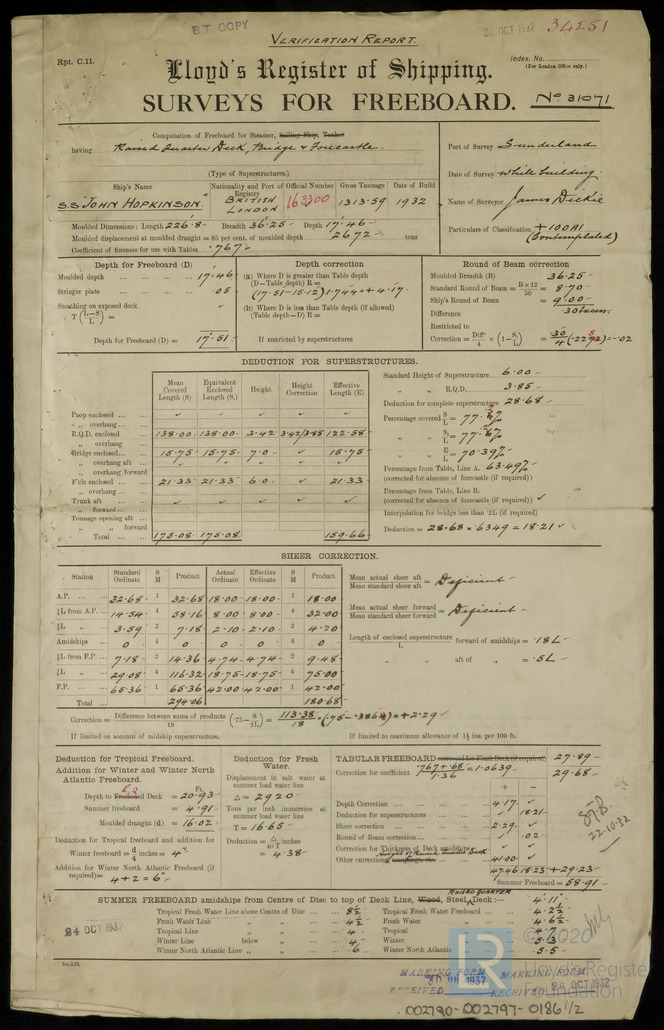 B.T. COPY
VERIFICATION REPORT.
22 OCT 1932
34251
Rpt. C.11.
Index. No.
(For London Office only.)
Lloyd's Register of Shipping.
SURVEYS FOR FREEBOARD. No 31071
Computation of Freeboard for Steamer, Sailing Ship, Tanker
having Raised Quarter Deck, Bridge & Forecastle.
(Type of Superstructures.)
Port of Survey Sunderland
Date of Survey while building
Name of Surveyor James Dickie
Particulars of Classification +100A1
(Contemplated)
Ship's Name Nationality and Port of Registry Official Number Gross Tonnage Date of Build
S.S. JOHN HOPKINSON. BRITISH LONDON 163300 1313.59 1932
Moulded Dimensions: Length 226.8 Breadth 36.25 Depth 17.46
Moulded displacement at moulded draught = 85 per cent. of moulded depth 2672 tons
Coefficient of fineness for use with Tables .767
Depth for Freeboard (D)
Moulded depth 17.46
Stringer plate .05
Sheathing on exposed deck
T (L-S / L) =
Depth for Freeboard (D) = 17.51
Depth correction
(a) Where D is greater than Table depth
(D—Table depth) R =
(17.51-15.12) 1.744 = + 4.17
(b) Where D is less than Table depth (if allowed)
(Table depth—D) R =
If restricted by superstructures
Round of Beam correction
Moulded Breadth (B) 36.25
Standard Round of Beam = B×12 / 50 = 8.70
Ship's Round of Beam = 9.00
Difference .30
Restricted to
Correction = Diffce / 4 × (1 - S₁ / L) = .30 / 4 = -.02
DEDUCTION FOR SUPERSTRUCTURES.
Mean Covered Length (S) Equivalent Enclosed Length (S₁) Height Height Correction Effective Length (E)
Poop enclosed
„ overhang
R.Q.D. enclosed 138.00 138.00 3.42 3.42/3.85 122.58
„ overhang
Bridge enclosed 15.75 15.75 7.0 15.75
„ overhang aft
„ overhang forward
F'cle enclosed 21.33 21.33 6.0 21.33
„ overhang
Trunk aft
„ forward
Tonnage opening aft
„ „ forward
Total 175.08 175.08 159.66
Standard Height of Superstructure 6.00
„ „ R.Q.D. 3.85
Deduction for complete superstructure 28.68
Percentage covered S / L =
„ „ S₁ / L =
„ „ E / L = 70.39%
Percentage from Table, Line A. 63.49%
(corrected for absence of forecastle (if required))
Percentage from Table, Line B.
(corrected for absence of forecastle (if required))
Interpolation for bridge less than ·2L (if required)
Deduction = 28.68 × .6349 = 18.21
SHEER CORRECTION.
Station Standard Ordinate S M Product Actual Ordinate Effective Ordinate S M Product
A.P. 32.68 1 32.68 18.00 18.00 1 18.00
⅙L from A.P. 14.54 4 58.16 8.00 8.00 4 32.00
⅓L „ 3.59 2 7.18 2.10 2.10 2 4.20
Amidships 0 4 0 0 0 4 0
⅓L from F.P. 7.18 2 14.36 4.74 4.74 2 9.48
⅙L „ 29.08 4 116.32 18.75 18.75 4 75.00
F.P. 65.36 1 65.36 42.00 42.00 1 42.00
Total 294.06 180.68
Mean actual sheer aft / Mean standard sheer aft = Deficient
Mean actual sheer forward / Mean standard sheer forward = Deficient
Length of enclosed superstructure / L forward of amidships = .18L
„ „ aft of „ = .5L
Correction = Difference between sums of products / 18 (·75 - S / 2L) = 113.38 / 18 = + 2.29
If limited on account of midship superstructure.
If limited to maximum allowance of 1½ ins. per 100 ft.
Deduction for Tropical Freeboard.
Addition for Winter and Winter North Atlantic Freeboard.
Ft.
Depth to Freeboard Deck = 20.93
Summer freeboard = 4.91
Moulded draught (d) = 16.02
Deduction for Tropical freeboard and addition for
Winter freeboard = d / 4 inches = 4"
Addition for Winter North Atlantic Freeboard (if required) = 4 + 2 = 6"
Deduction for Fresh Water.
Displacement in salt water at summer load water line
Δ = 2920
Tons per inch immersion at summer load water line
T = 16.65
Deduction = Δ / 40 T inches
= 4.38
TABULAR FREEBOARD corrected for Flush Deck (if required) 27.89
Correction for coefficient .767 + .68 / 1.36 = 1.0639 29.68
+ -
Depth Correction 4.17
Deduction for superstructures 18.21
Sheer correction 2.29
Round of Beam correction .02
Correction for Thickness of Deck amidships
Other corrections Height of Raised Quarter Deck 41.00
47.46 18.23 + 29.23
Summer Freeboard = 58.91
STB
22.10.32
SUMMER FREEBOARD amidships from Centre of Disc to top of Deck Line, Wood, Steel, RAISED QUARTER Deck:— 4.11"
Tropical Fresh Water Line above Centre of Disc 8½
Fresh Water Line „ „ 4½
Tropical Line „ „ 4
Winter Line below „ 4
Winter North Atlantic Line „ „ 6
Tropical Fresh Water Freeboard 4.2½
Fresh Water „ 4.6½
Tropical „ 4.7
Winter „ 5.3
Winter North Atlantic „ 5.5
24 OCT 1932
MARKING FORM
30 JUL 1937
RECEIVED
MARKING FORM
RECEIVED 26 OCT 1932
© 2020
LR
Lloyd's Register
Foundation
002790-002797-0186 1/2